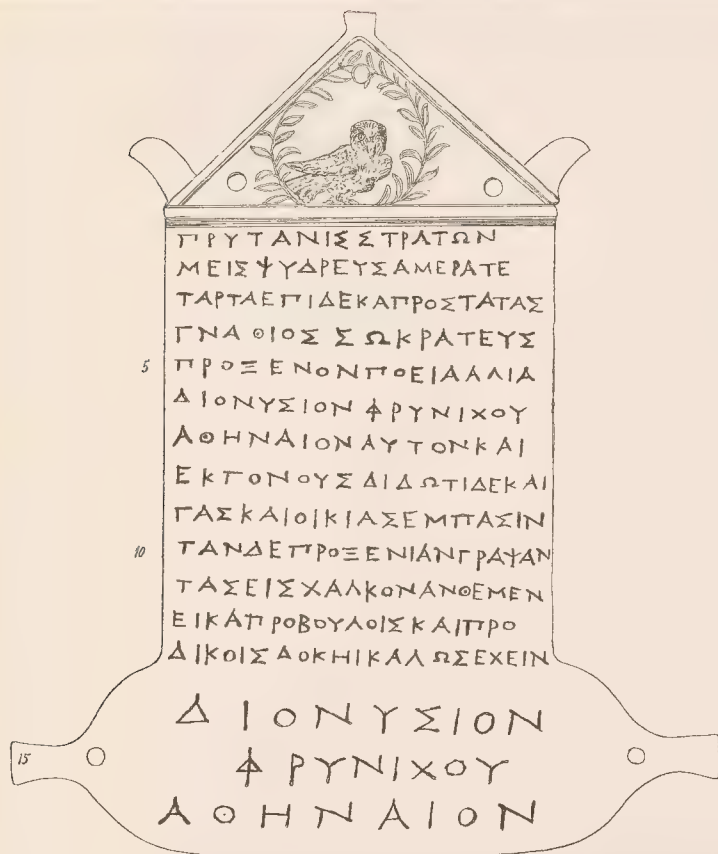 ΠΡΥΤΑΝΙΣΣΤΡΑΤΩΝ
ΜΕΙΣΨΥΔΡΕΥΣΑΜΕΡΑΤΕ
ΤΑΡΤΑΕΠΙΔΕΚΑΠΡΟΣΤΑΤΑΣ
ΓΝΑΘΙΟΣΣΩΚΡΑΤΕΥΣ
5 ΠΡΟΞΕΝΟΝΠΟΕΙΑΑΛΙΑ
ΔΙΟΝΥΣΙΟΝΦΡΥΝΙΧΟΥ
ΑΘΗΝΑΙΟΝΑΥΤΟΝΚΑΙ
ΕΚΓΟΝΟΥΣΔΙΔΩΤΙΔΕΚΑΙ
ΓΑΣΚΑΙΟΙΚΙΑΣΕΜΠΑΣΙΝ
10 ΤΑΝΔΕΠΡΟΞΕΝΙΑΝΓΡΑΨΑΝ
ΤΑΣΕΙΣΧΑΛΚΟΝΑΝΘΕΜΕΝ
ΕΙΚΑΠΡΟΒΟΥΛΟΙΣΚΑΙΠΡΟ
ΔΙΚΟΙΣΔΟΚΗΙΚΑΛΩΣΕΧΕΙΝ
ΔΙΟΝΥΣΙΟΝ
15 ΦΡΥΝΙΧΟΥ
ΑΘΗΝΑΙΟΝ